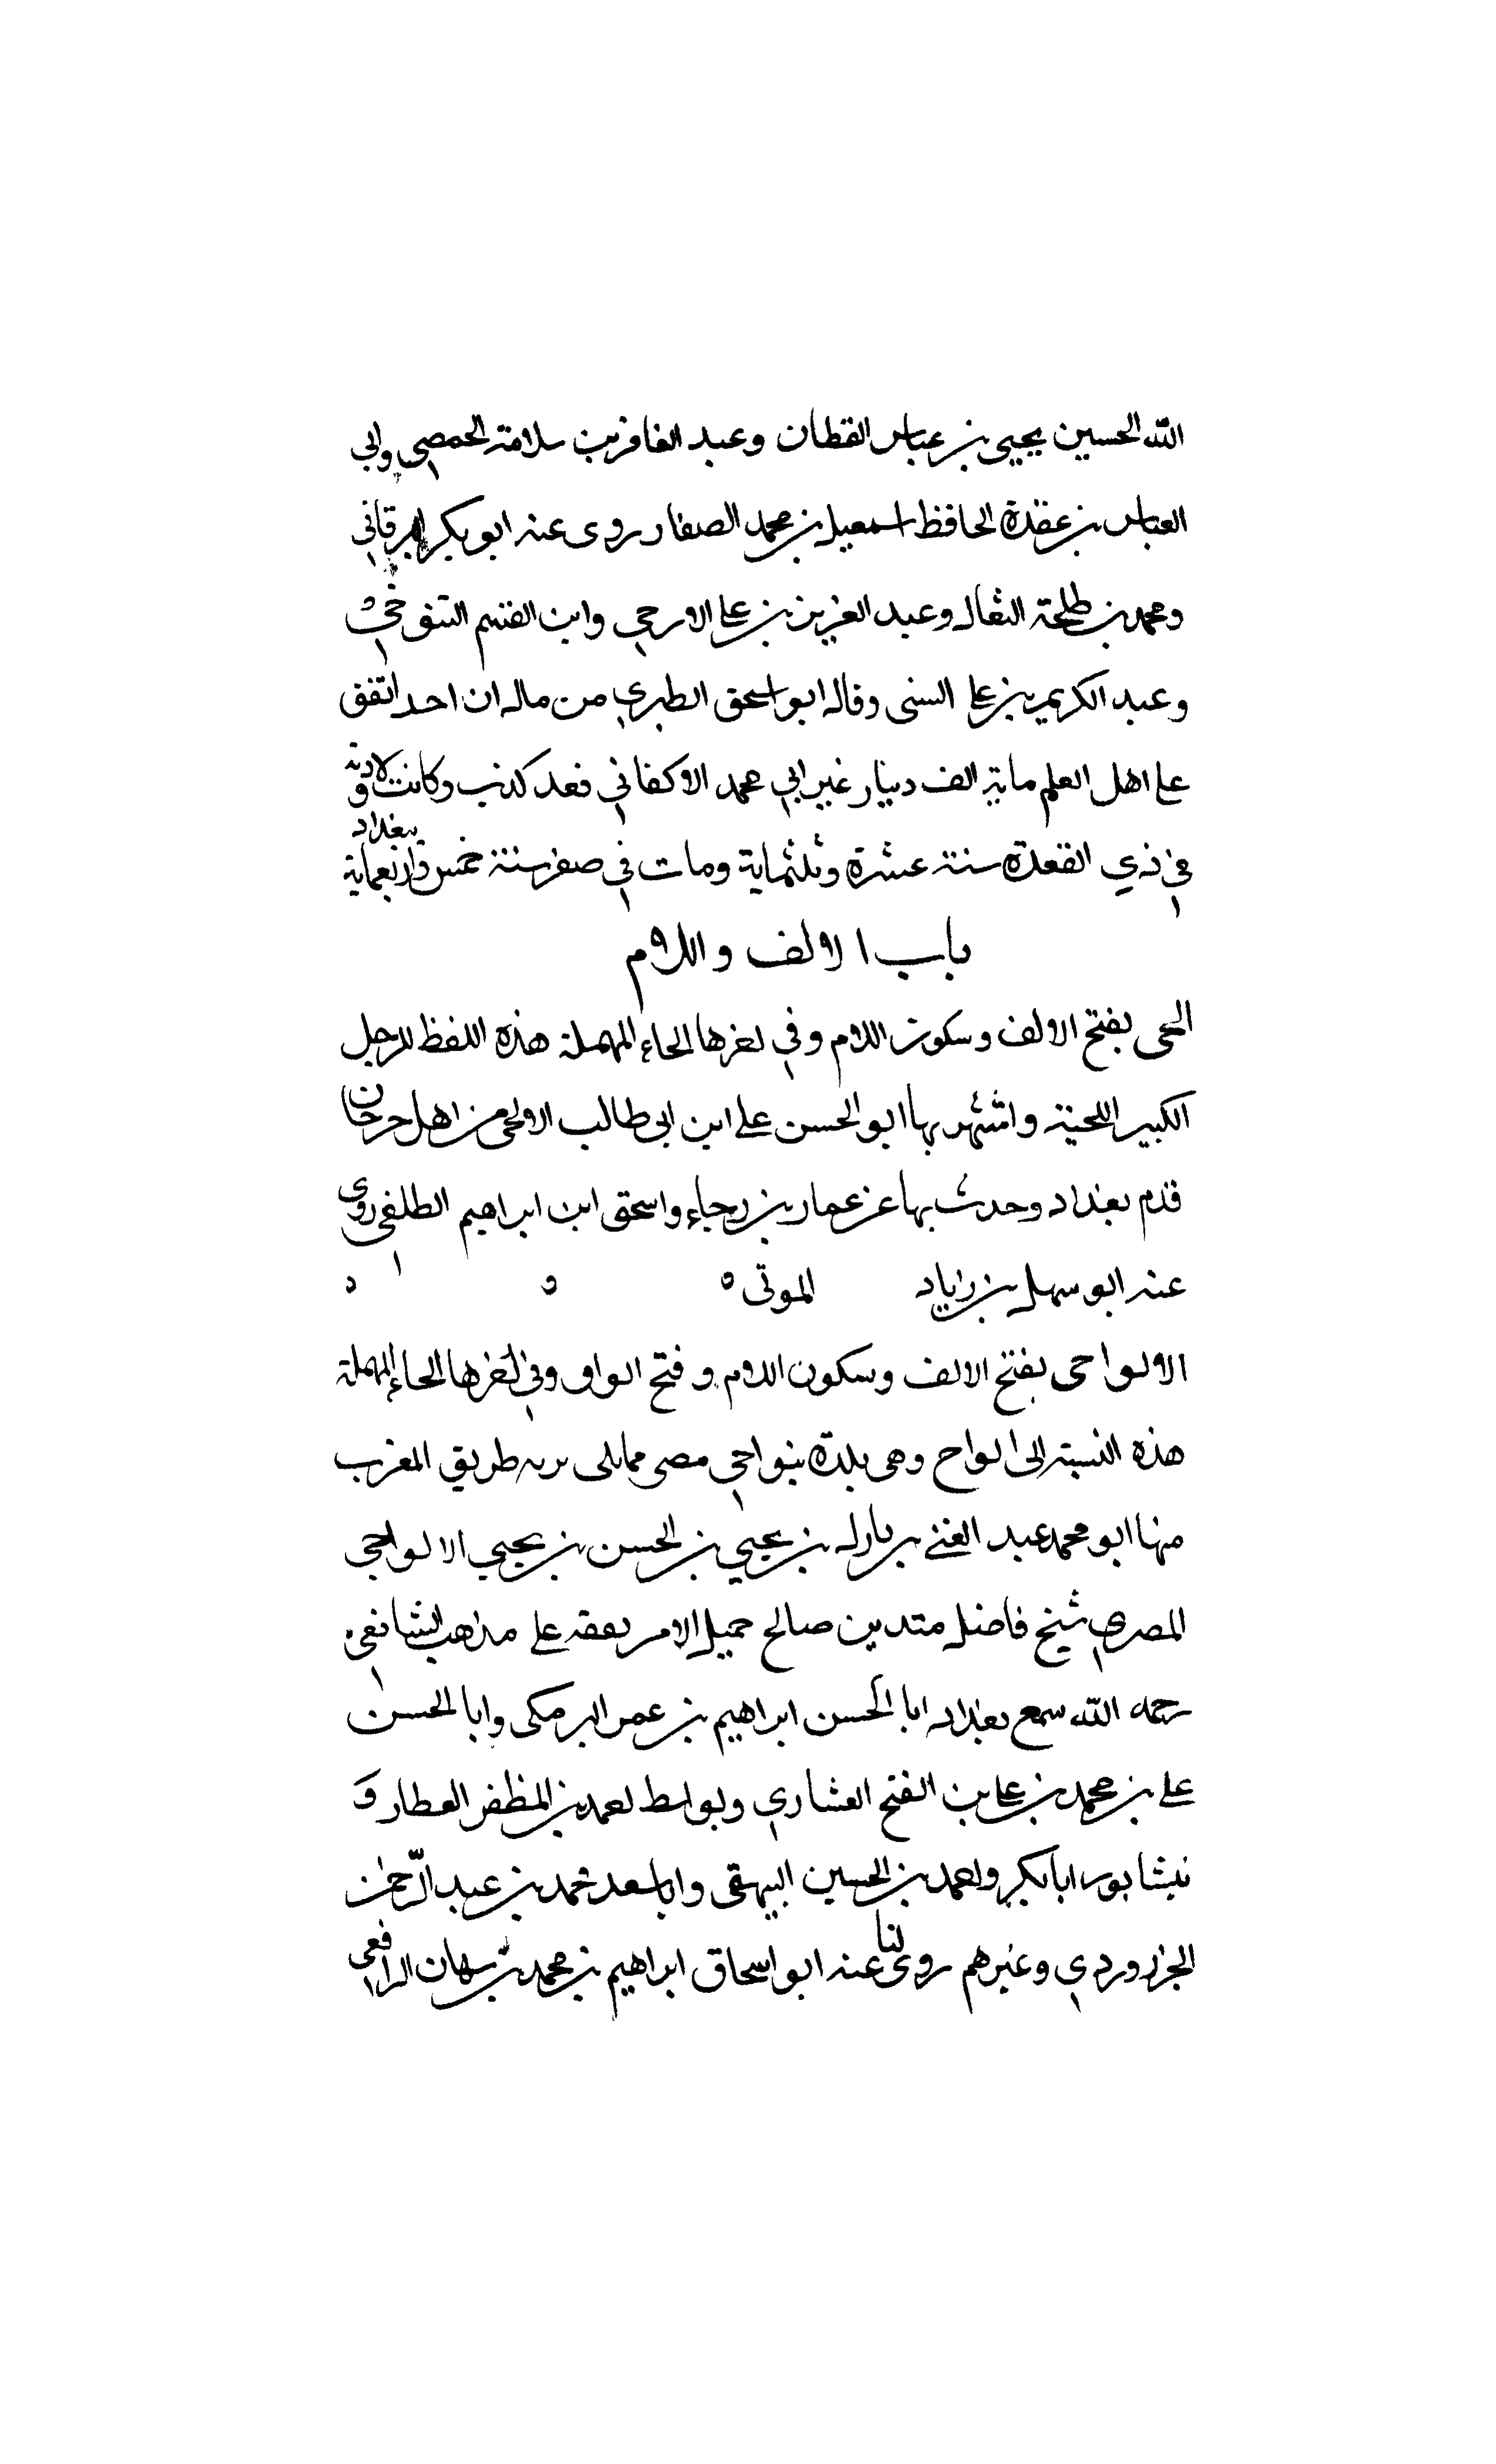 الله الحسين يحيى بن عباس القطان وعبد الغافر بن سلامة الحمصي وابي
العباس بن عقدة الحافظ اسمعيل بن محمد الصفار روى عنه ابو بكر البرقاني
ومحمد بن طلحة النعال وعبد العزيز بن على الازجي وابن القسم التنوخي
وعبد الكريم بن على السنى وقال ابو اسحق الطبري من قال ان احد اتفق
على اهل العلم ماية الف دينار غير ابي محمد الاكفاني فعد كذب وكانت ولادته
ببغداد
في ذي القعدة سنة عشرة وثلثماية ومات في صفر سنة خمس واربعماية
باب الالف واللام
الحى بفتح الالف وسكون اللام وفي اخرها الحاء المهملة هذه اللفظ للرجل
الكبير اللحية واشتهر بها ابو الحسن على ابن ابى طالب الالحى من اهل جرجان
قدم بغداد وحدث بها عن عمار بن رجاء واسحق ابن ابراهيم الطلقي روى
عنه ابو سهل بن زياد الموتى
الالواحى بفتح الالف وسكون اللام وفتح الواو وفي اخرها الحاء المهملة
هذه النسبة الى الواح وهى بلدة بنواحي مصر مما يلى برية طريق المغرب
منها ابو محمد عبد الغني بن بازل بن يحيي بن الحسن بن يحيي الالواحي
المصري شيخ فاضل متدين صالح جميل الامر يفقه على مذهب الشافعي
رحمه الله سمع بغداد ابا الحسن ابراهيم بن عمر البرمكى وابا الحسن
على بن محمد بن على بن الفتح العشاري وبواسط احمد بن المظفر العطار و
نيشابور ابا بكر واحمد بن الحسين البيهقى وابا سعد محمد بن عبد الرحمن
الجنزروردي وغيرهم روى لنا عنه ابو اسحاق ابراهيم بن محمد بن نبهان الرافعى